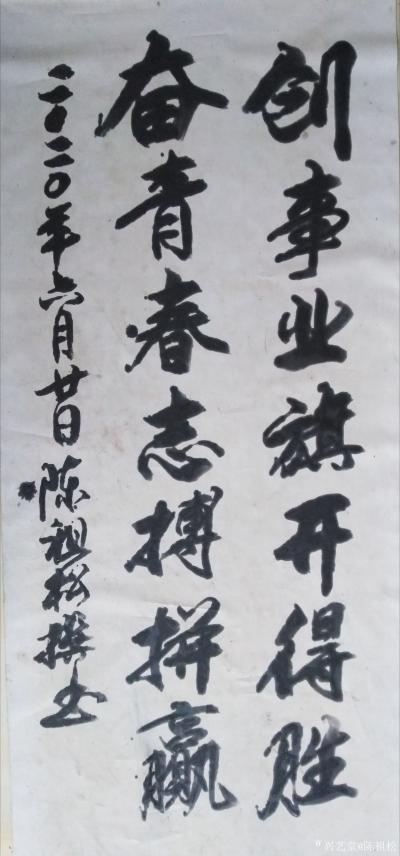 创事业旗开得胜
奋青春志搏拼赢
二〇二〇年六月廿日陈祖松撰书
兴艺堂@陈祖松